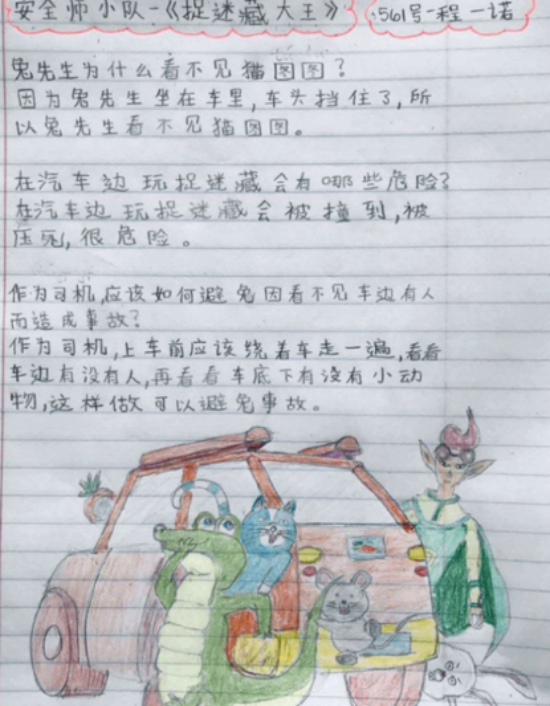 安全师小队-《捉迷藏大王》 561号-程一诺
兔先生为什么看不见猫图图?
因为兔先生坐在车里,车头挡住了,所
以兔先生看不见猫图图。
在汽车边玩捉迷藏会有哪些危险?
在汽车边玩捉迷藏会被撞到,被
压死,很危险。
作为司机,应该如何避免因看不见车边有人
而造成事故?
作为司机,上车前应该绕着车走一遍,看看
车边有没有人,再看看车底下有没有小动
物,这样做可以避免事故。